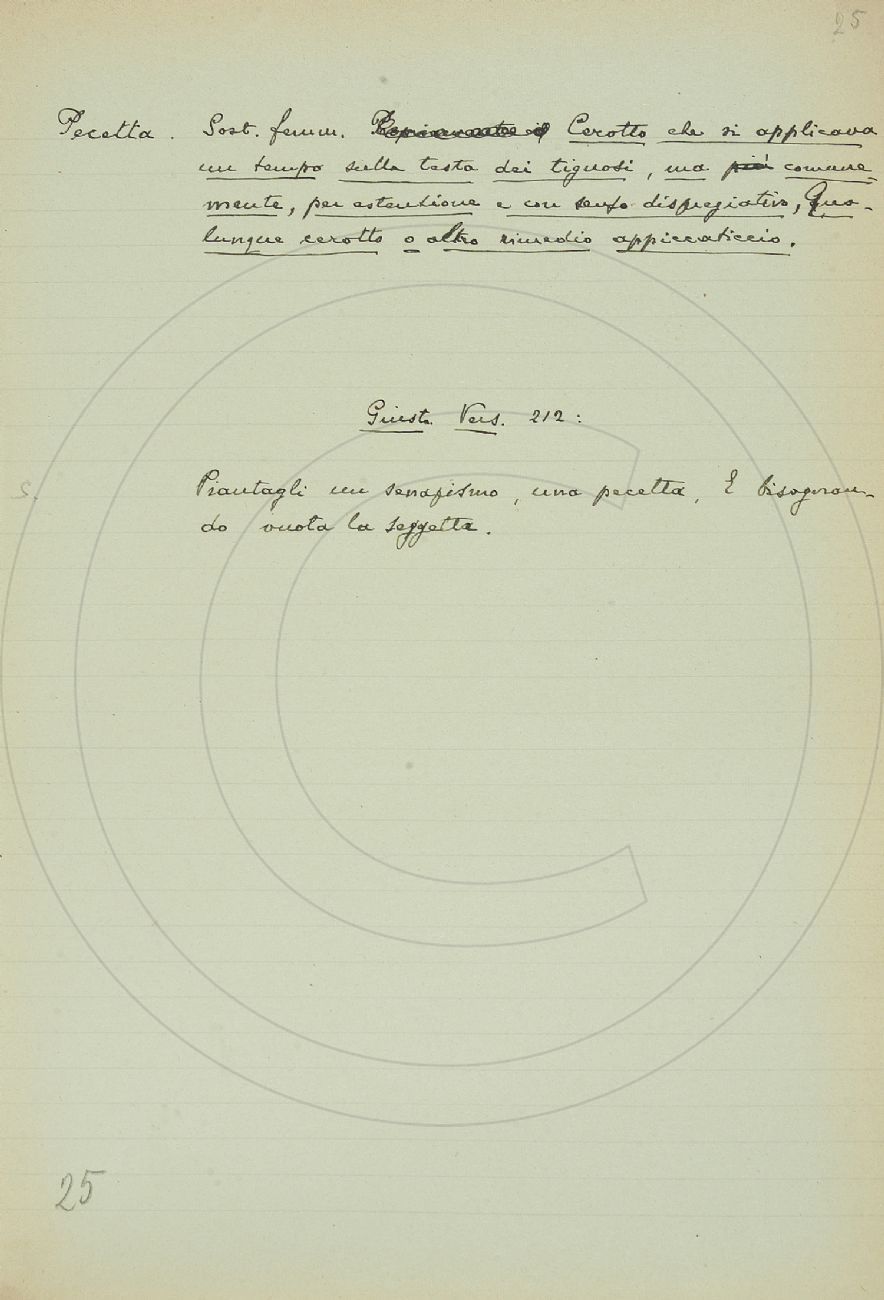 25
Pecetta. Sost. femm. Cerotto che si applicava
un tempo sulla testa dei tignosi, ma più comune-
mente, per estensione e con senso dispregiativo, Qua-
lunque cerotto o altro rimedio appiccaticcio.
Giust. Vers. 212:
Piantagli un senapismo, una pecetta, E bisognan-
do vuota la seggetta.
25